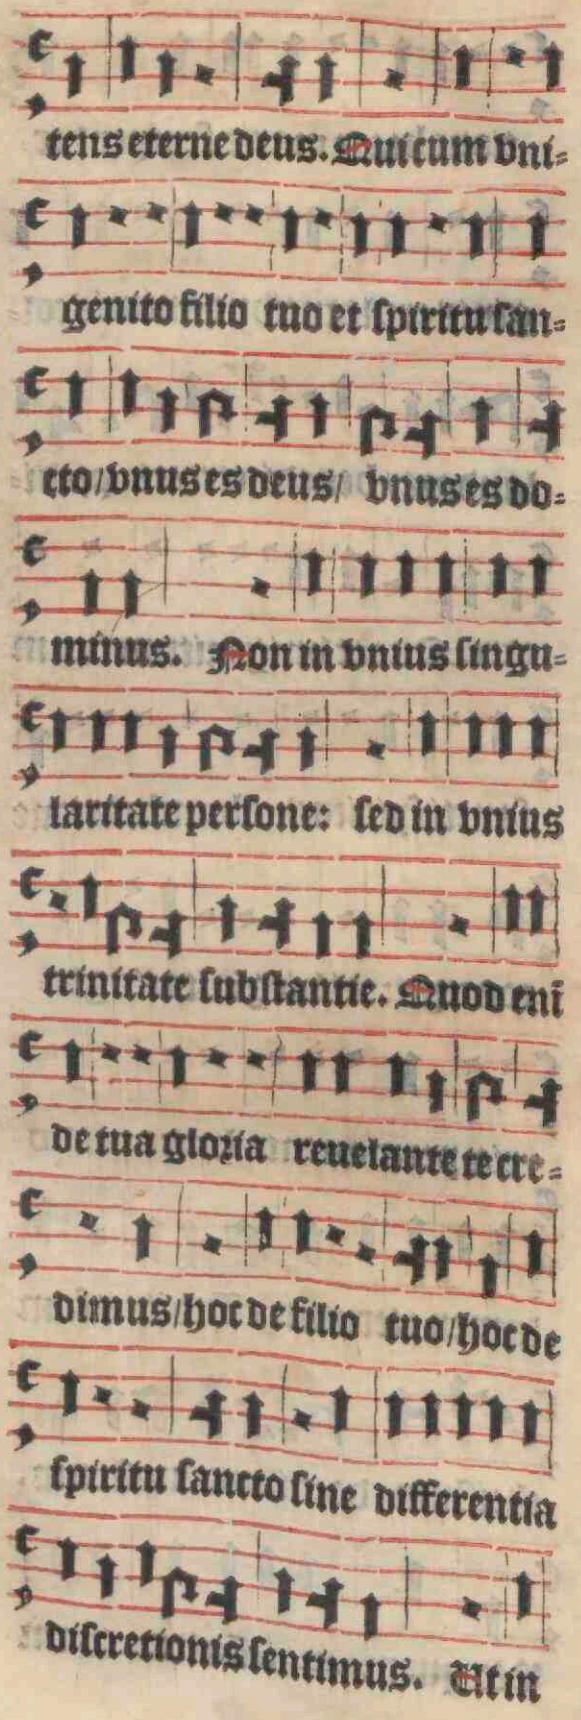 tens eterne deus. Qui cum vni=
genito filio tuo et spiritu san=
cto/vnus es deus/ vnus es do=
minus. Non in vnius singu=
laritate persone: sed in vnius
trinitate substantie. Quod enī
de tua gloria reuelante te cre=
dimus/hoc de filio tuo/hoc de
spiritu sancto sine differentia
discretionis sentimus. Ut in